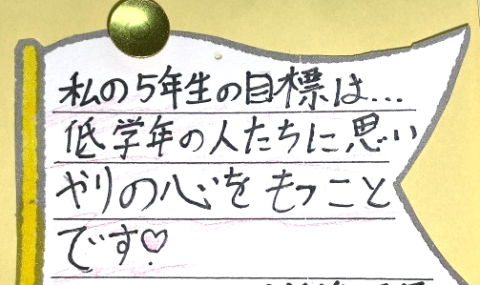 私の5年生の目標は...
低学年の人たちに思い
やりの心をもつこと
です♡